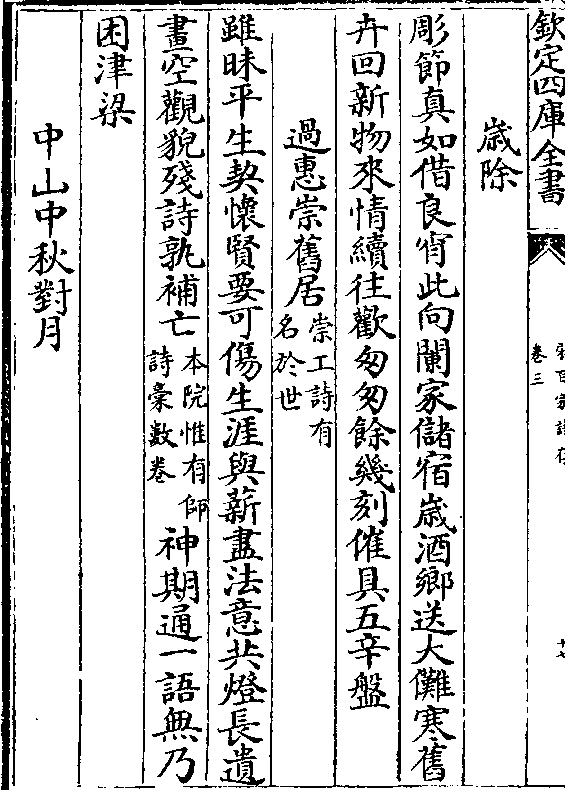 欽定四庫全書
卷三
歲除
彫節真如借良宵此向闌家儲宿歲酒鄉送大儺寒舊
卉回新物來情續往歡匆匆餘幾刻催具五辛盤
過惠崇舊居崇工詩有名於世
雖昧平生契懷賢要可傷生涯與薪盡法意共燈長遺
畫空觀貌殘詩孰補亡本院惟有師詩槀數卷神期通一語無乃
困津梁
中山中秋對月